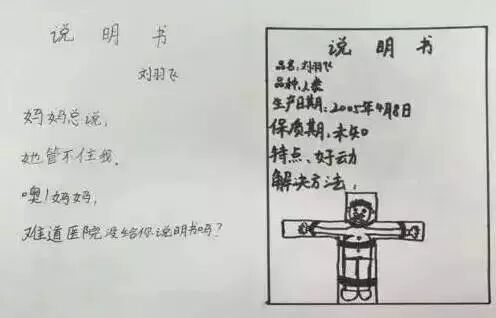 说明书
刘羽飞
妈妈总说,
她管不住我.
噢!妈妈,
难道医院没给你说明书吗?
说明书
品名:刘羽飞
品种,人类
生产日期:2005年4月8日
保质期,未知
特点、好动
解决方法: